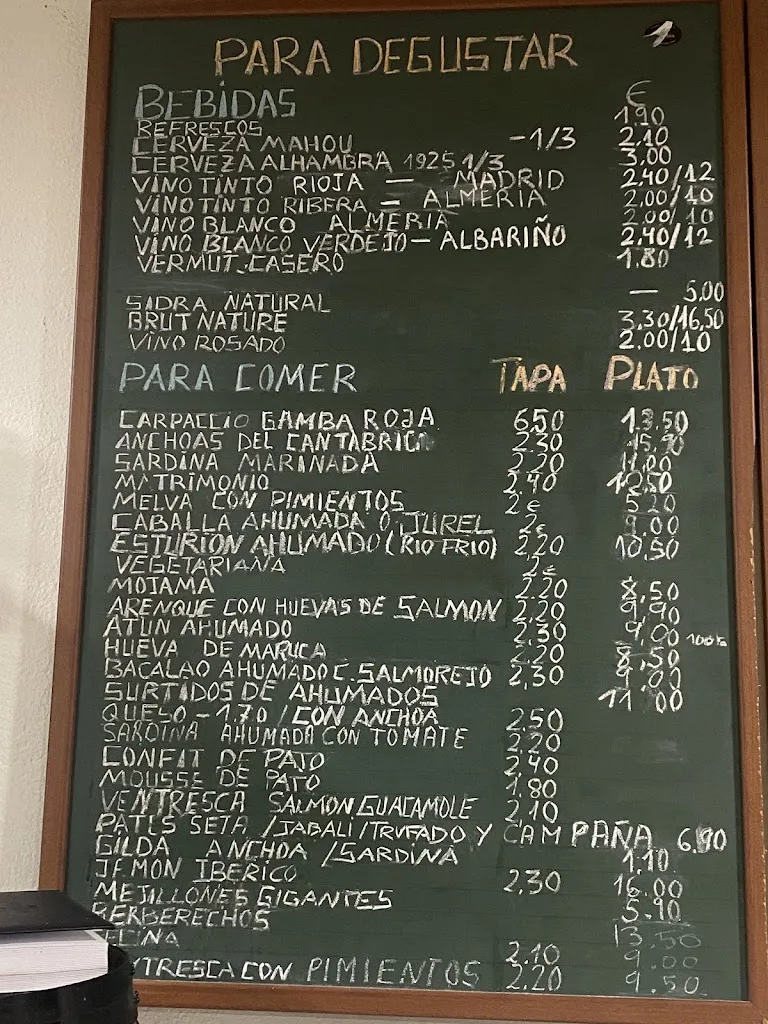 PARA DEGUSTAR
BEBIDAS €
REFRESCOS 1,90
CERVEZA MAHOU -1/3 2.10
CERVEZA ALHAMBRA 1925 1/3 3.00
VINO TINTO RIOJA = MADRID 2.40/12
VINO TINTO RIBERA = ALMERIA 2.00/10
VINO BLANCO ALMERIA 2.00/10
VINO BLANCO VERDEJO - ALBARIÑO 2,40/12
VERMUT.CASERO 1.80
SIDRA NATURAL — 5.00
BRUT NATURE 3.30/16,50
VINO ROSADO 2.00/10
PARA COMER TAPA PLATO
CARPACCIO GAMBA ROJA 6.50 13.50
ANCHOAS DEL CANTABRICO 2.30 15.90
SARDINA MARINADA 2.20 11,00
MATRIMONIO 2,40 12,50
MELVA CON PIMIENTOS 2€ 5.20
CABALLA AHUMADA O JUREL 2€ 9.00
ESTURION AHUMADO (RIO FRIO) 2,20 10.50
VEGETARIANA 2€
MOJAMA 2.20 8,50
ARENQUE CON HUEVAS DE SALMON 2,20 9.90
ATUN AHUMADO 2,30 9,00
HUEVA DE MARUCA 2.20 8,50
BACALAO AHUMADO C. SALMOREJO 2,30 9.00
SURTIDOS DE AHUMADOS 11'00
QUESO - 1.70 / CON ANCHOA 2.50
SARDINA AHUMADA CON TOMATE 2,20
CONFIT DE PATO 2,40
MOUSSE DE PATO 1.80
VENTRESCA SALMON GUACAMOLE 2,10
PATES SETA /JABALI/TRUFADO Y CAMPAÑA 6.90
GILDA ANCHOA /SARDINA 1.10
JAMON IBERICO 2,30 16.00
MEJILLONES GIGANTES 5.90
BERBERECHOS 13.50
2.10 9.00
TRESCA CON PIMIENTOS 2.20 9.50